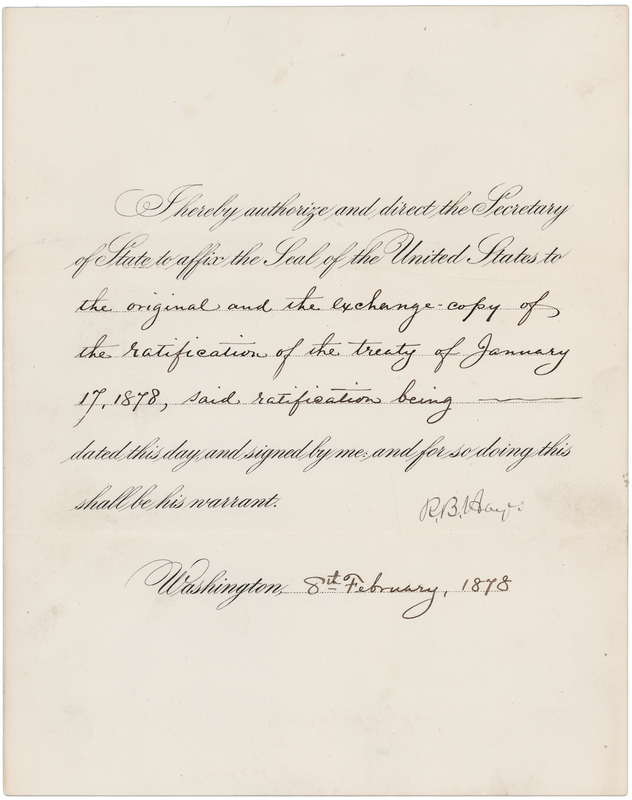 I hereby authorize and direct the Secretary
of State to affix the Seal of the United States to
the original and the exchange-copy of
the ratification of the treaty of January
17, 1878, said ratification being
dated this day, and signed by me; and for so doing this
shall be his warrant.
R.B. Hayes
Washington, 8th February, 1878